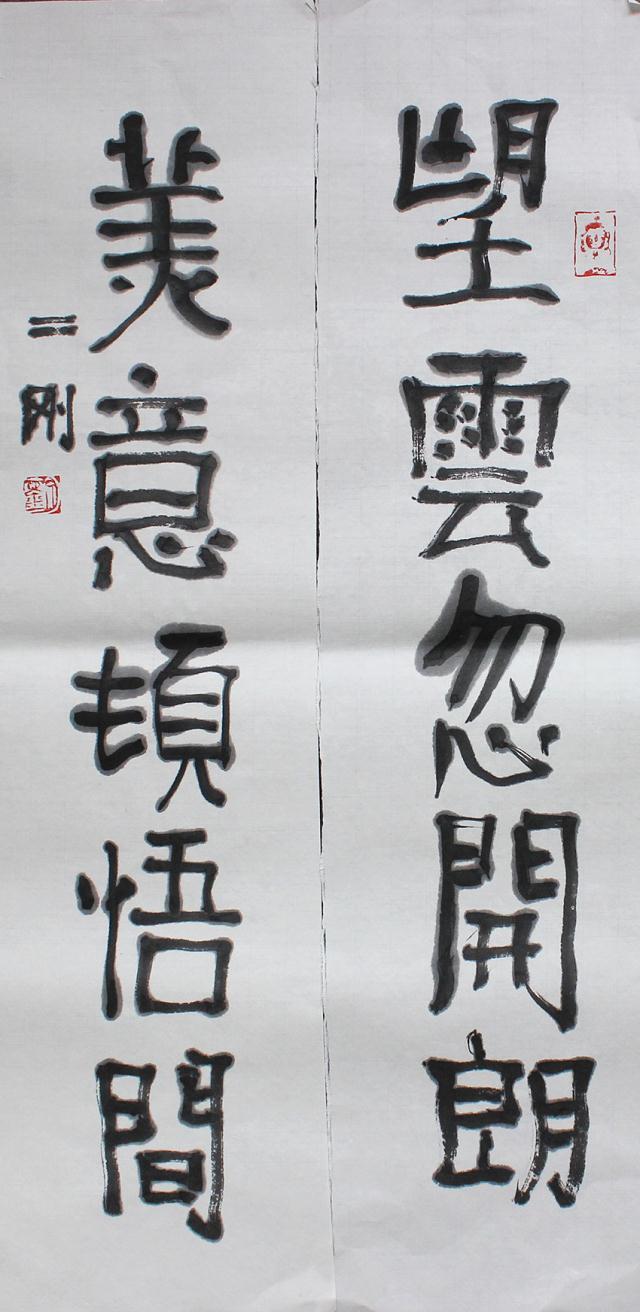 望雲忽開朗
美意頓悟間
二剛